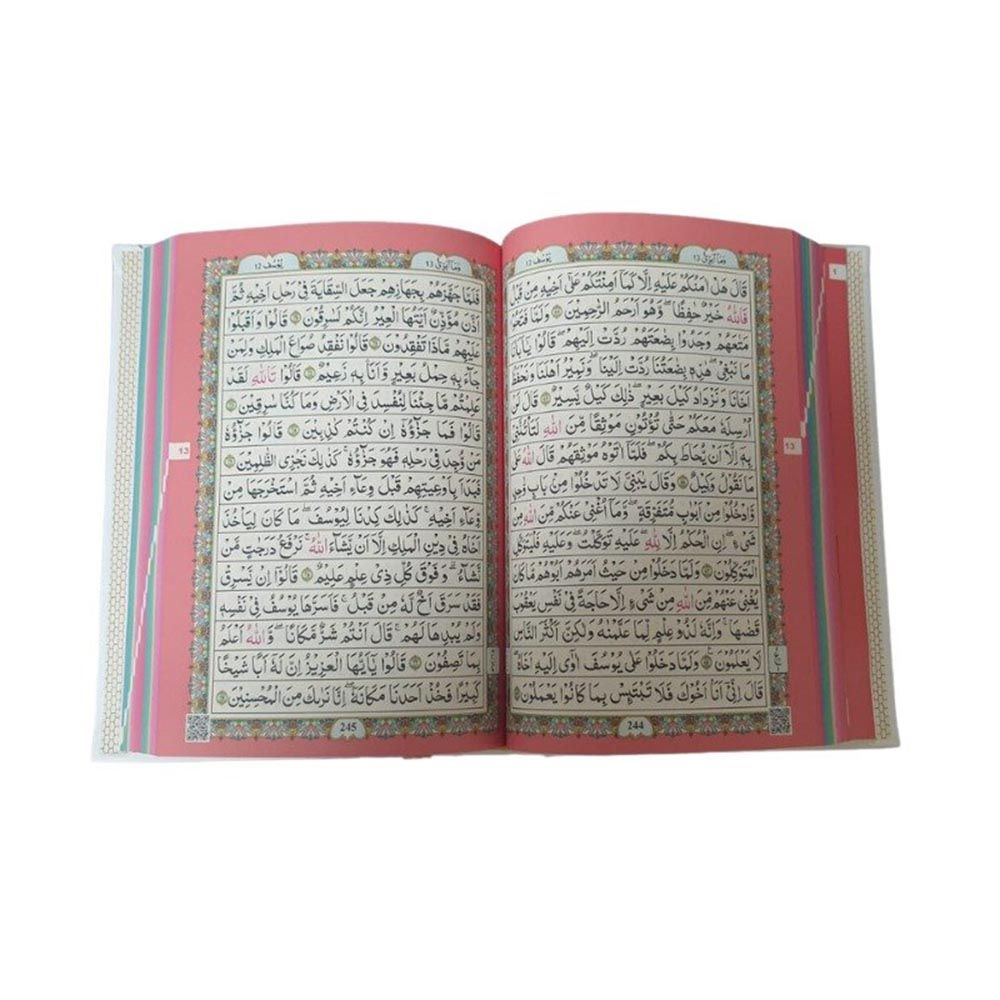 وَمَاۤ اُبَرِّئُ 13
يُوْسُف 12
قَالَ هَلْ اٰمَنُكُمْ عَلَيْهِ اِلَّا كَمَاۤ اَمِنْتُكُمْ عَلٰۤى اَخِيْهِ مِنْ قَبْلُ
فَاللّٰهُ خَيْرٌ حٰفِظًا ۪ وَّهُوَ اَرْحَمُ الرّٰحِمِيْنَ ٦٤ وَلَمَّا فَتَحُوْا
مَتَاعَهُمْ وَجَدُوْا بِضَاعَتَهُمْ رُدَّتْ اِلَيْهِمْ ؕ قَالُوْا يٰۤاَبَانَا
مَا نَبْغِيْ ؕ هٰذِهٖ بِضَاعَتُنَا رُدَّتْ اِلَيْنَا ۚ وَنَمِيْرُ اَهْلَنَا وَنَحْفَظُ
اَخَانَا وَنَزْدَادُ كَيْلَ بَعِيْرٍ ؕ ذٰلِكَ كَيْلٌ يَّسِيْرٌ ٦٥ قَالَ لَنْ
اُرْسِلَهٗ مَعَكُمْ حَتّٰى تُؤْتُوْنِ مَوْثِقًا مِّنَ اللّٰهِ لَتَاْتُنَّنِيْ
بِهٖۤ اِلَّاۤ اَنْ يُّحَاطَ بِكُمْ ۚ فَلَمَّاۤ اٰتَوْهُ مَوْثِقَهُمْ قَالَ اللّٰهُ عَلٰى
مَا نَقُوْلُ وَكِيْلٌ ٦٦ وَقَالَ يٰبَنِيَّ لَا تَدْخُلُوْا مِنْ بَابٍ وَّاحِدٍ
وَّادْخُلُوْا مِنْ اَبْوَابٍ مُّتَفَرِّقَةٍ ؕ وَمَاۤ اُغْنِيْ عَنْكُمْ مِّنَ اللّٰهِ مِنْ
شَيْءٍ ؕ اِنِ الْحُكْمُ اِلَّا لِلّٰهِ ؕ عَلَيْهِ تَوَكَّلْتُ ۚ وَعَلَيْهِ فَلْيَتَوَكَّلِ
الْمُتَوَكِّلُوْنَ ٦٧ وَلَمَّا دَخَلُوْا مِنْ حَيْثُ اَمَرَهُمْ اَبُوْهُمْ ؕ مَا كَانَ
يُغْنِيْ عَنْهُمْ مِّنَ اللّٰهِ مِنْ شَيْءٍ اِلَّا حَاجَةً فِيْ نَفْسِ يَعْقُوْبَ
قَضٰىهَا ؕ وَاِنَّهٗ لَذُوْ عِلْمٍ لِّمَا عَلَّمْنٰهُ وَلٰكِنَّ اَكْثَرَ النَّاسِ
لَا يَعْلَمُوْنَ ٦٨ وَلَمَّا دَخَلُوْا عَلٰى يُوْسُفَ اٰوٰۤى اِلَيْهِ اَخَاهُ
قَالَ اِنِّيْۤ اَنَا اَخُوْكَ فَلَا تَبْتَىِٕسْ بِمَا كَانُوْا يَعْمَلُوْنَ ٦٩
244
1
13
وَمَاۤ اُبَرِّئُ 13
يُوْسُف 12
فَلَمَّا جَهَّزَهُمْ بِجَهَازِهِمْ جَعَلَ السِّقَايَةَ فِيْ رَحْلِ اَخِيْهِ ثُمَّ
اَذَّنَ مُؤَذِّنٌ اَيَّتُهَا الْعِيْرُ اِنَّكُمْ لَسٰرِقُوْنَ ٧٠ قَالُوْا وَاَقْبَلُوْا
عَلَيْهِمْ مَّاذَا تَفْقِدُوْنَ ٧١ قَالُوْا نَفْقِدُ صُوَاعَ الْمَلِكِ وَلِمَنْ
جَآءَ بِهٖ حِمْلُ بَعِيْرٍ وَّاَنَا بِهٖ زَعِيْمٌ ٧٢ قَالُوْا تَاللّٰهِ لَقَدْ
عَلِمْتُمْ مَّا جِئْنَا لِنُفْسِدَ فِي الْاَرْضِ وَمَا كُنَّا سٰرِقِيْنَ ٧٣
قَالُوْا فَمَا جَزَآؤُهٗۤ اِنْ كُنْتُمْ كٰذِبِيْنَ ٧٤ قَالُوْا جَزَآؤُهٗ
مَنْ وُّجِدَ فِيْ رَحْلِهٖ فَهُوَ جَزَآؤُهٗ ؕ كَذٰلِكَ نَجْزِي الظّٰلِمِيْنَ ٧٥
فَبَدَاَ بِاَوْعِيَتِهِمْ قَبْلَ وِعَآءِ اَخِيْهِ ثُمَّ اسْتَخْرَجَهَا مِنْ
وِّعَآءِ اَخِيْهِ ؕ كَذٰلِكَ كِدْنَا لِيُوْسُفَ ؕ مَا كَانَ لِيَاْخُذَ
اَخَاهُ فِيْ دِيْنِ الْمَلِكِ اِلَّاۤ اَنْ يَّشَآءَ اللّٰهُ ؕ نَرْفَعُ دَرَجٰتٍ مَّنْ
نَّشَآءُ ؕ وَفَوْقَ كُلِّ ذِيْ عِلْمٍ عَلِيْمٌ ٧٦ قَالُوْۤا اِنْ يَّسْرِقْ
فَقَدْ سَرَقَ اَخٌ لَّهٗ مِنْ قَبْلُ ۚ فَاَسَرَّهَا يُوْسُفُ فِيْ نَفْسِهٖ
وَلَمْ يُبْدِهَا لَهُمْ ۚ قَالَ اَنْتُمْ شَرٌّ مَّكَانًا ۚ وَاللّٰهُ اَعْلَمُ
بِمَا تَصِفُوْنَ ٧٧ قَالُوْا يٰۤاَيُّهَا الْعَزِيْزُ اِنَّ لَهٗۤ اَبًا شَيْخًا
كَبِيْرًا فَخُذْ اَحَدَنَا مَكَانَهٗ ۚ اِنَّا نَرٰىكَ مِنَ الْمُحْسِنِيْنَ ٧٨
245
13